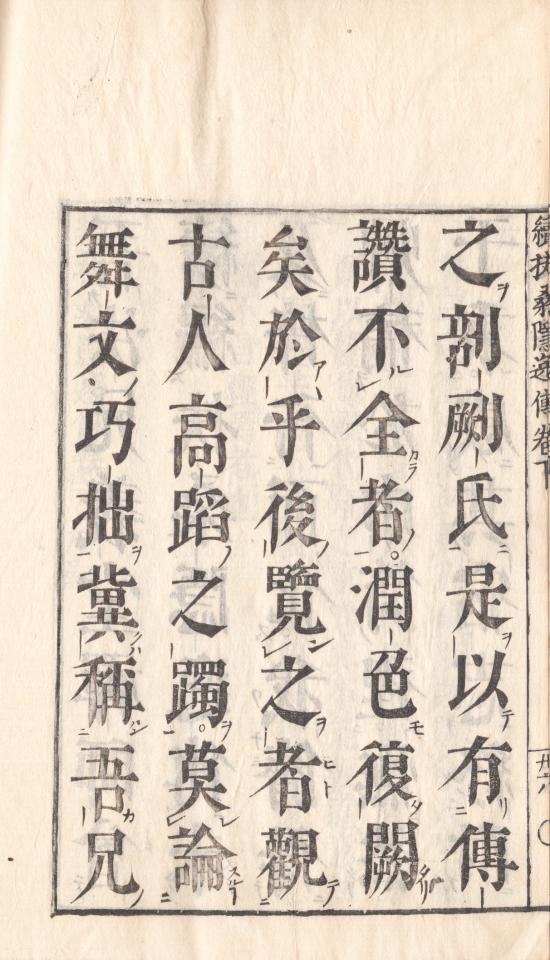 續扶桑隱逸傳卷下
之剞劂氏是以有傳
讚不全者潤色復闕
矣於乎後覽之者觀
古人高蹈之躅莫論
舞文巧拙冀稱吾兄